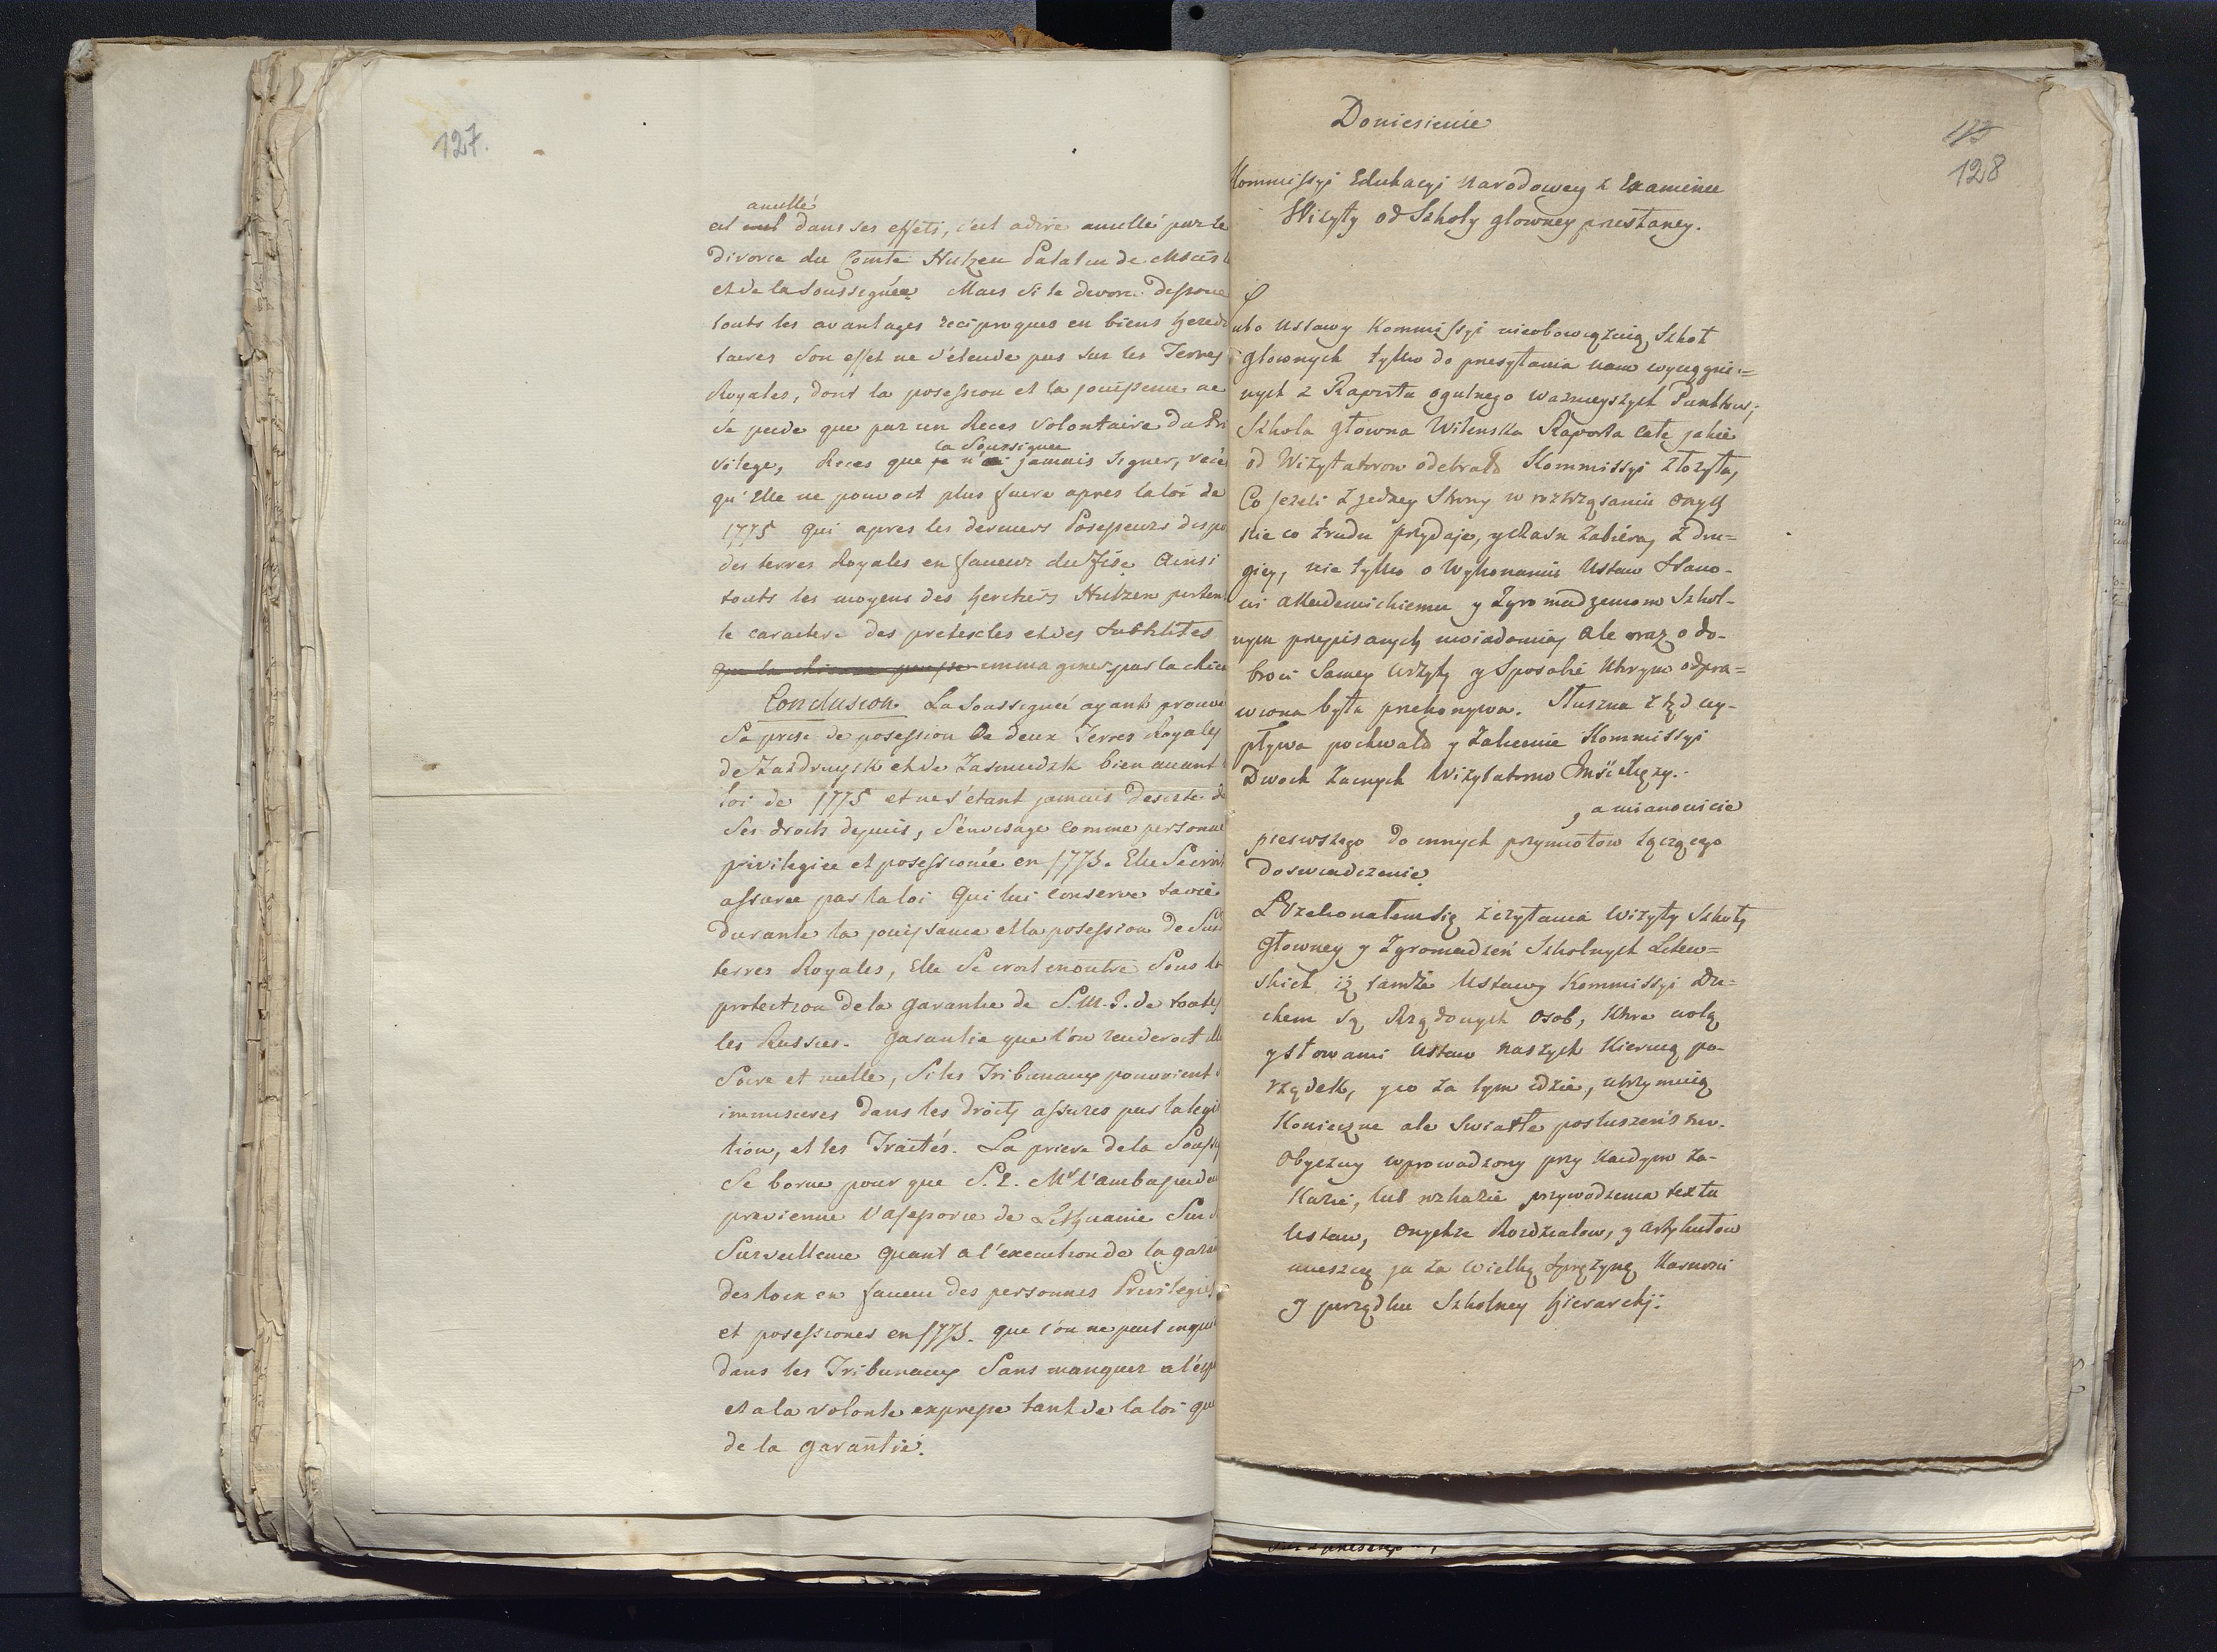 127.
anullé
est nul dans ses effets, c'est adire anullé par le
divorce du Comte Hutzen Palatin de
et de la Soussignée. Mais si le divorce
touts les avantages reciproques en biens
taires son effet ne s'etende pas sur les Terres
Royales, dont la posession et la jouissance ne
se perde que par un Reces volontaire du
la Soussignee
vilege, Reces que je n'ai jamais signer,
qu'Elle ne pouvoit plus faire apres la loi de
1775 qui apres les derniers Posesseurs
des terres Royales en faveur du Fisc. Ainsi
touts les moyens des heritiers Hutzen
le caractere des pretextes et des subtilites
que la chicane immagines par la
Conclusion. La Soussignée ayant
Sa prise de posession de deux Terres Royales
de et de bien avant
loi de 1775 et ne s'étant jamais desisté de
Ses droits depuis, s'envisage comme personne
privilegiee et posessionée en 1775. Elle Se
assuree par la loi qui lui conserve
durante la jouissance et la posession de
terres Royales, Elle Se croit enoutre Sous la
protection de la garantie de S.M.I. de toutes
les Russies. garantie que l'on renderoit
Soire et nulle, Si les Tribunaux pouvoient
immiscer dans les droits assures par la
tion, et les Traités. La priere de la
Se borne pour que S.E. Mr l'ambassadeur
previenne l'assessorie de Lithuanie Sur
Surveillence quant a l'execution de la
des loix en faveur des personnes
et posessiones en 1775. que l'on ne peut
dans les Tribunaux Sans manquer a
et a la volonte expresse tant de la loi que
de la garantie.
128
Doniesienie
Kommissyi Edukacyi Narodowey z Examinu
Wizyty od Szkoły głowney przesłaney.
Lubo Ustawy Kommissyi nieobowiązuią Szkoł
głownych tylko do przesyłania nam wyciągnio=
nych z Raportu ogulnego ważnieyszych Punktow;
Szkoła głowna Wilenska Raporta całe jakie
od Wizytatorow odebrała Kommissyi złożyła,
Co jeżeli z jedney Strony w roztrząsaniu onych
nie co trudu przydaje, y czasu zabiera, z dru=
giey, nie tylko o wykonaniu Ustaw Stano-
wi Akademickiemu y Zgromadzeniom Szkol-
nym przepisanych uwiadamia, ale oraz o do-
broci Samey wizyty y Sposobie którym odpra=
wiona była przekonywa. Słuszna z tąd wy-
pływa pochwała y zalecenie Kommissyi
Dwoch zacnych Wizytatorow
, a mianowicie
pierwszego do innych przymiotow łączącego
doswiadczenie.
Przekonałem się z czytania Wizyty Szkoły
Głowney y Zgromadzeń Szkolnych Litew=
skich iż tamże Ustawy Kommissyi Du=
chem są Rządonych Osob, Ktore wolą
y słowami Ustaw naszych Kierują po-
rządek, y co za tym idzie, utrzymuią
Konieczne ale Swiatłe posłuszeństwo.
Obyczay wprowadzony przy Kazdym za-
Kazie, lub nakazie przywodzenia textu
Ustaw, onychże Rozdziałow, y artykułow
mieszczę ja za wielką sprężynę Karności
y porządku Szkolney hierarchij.